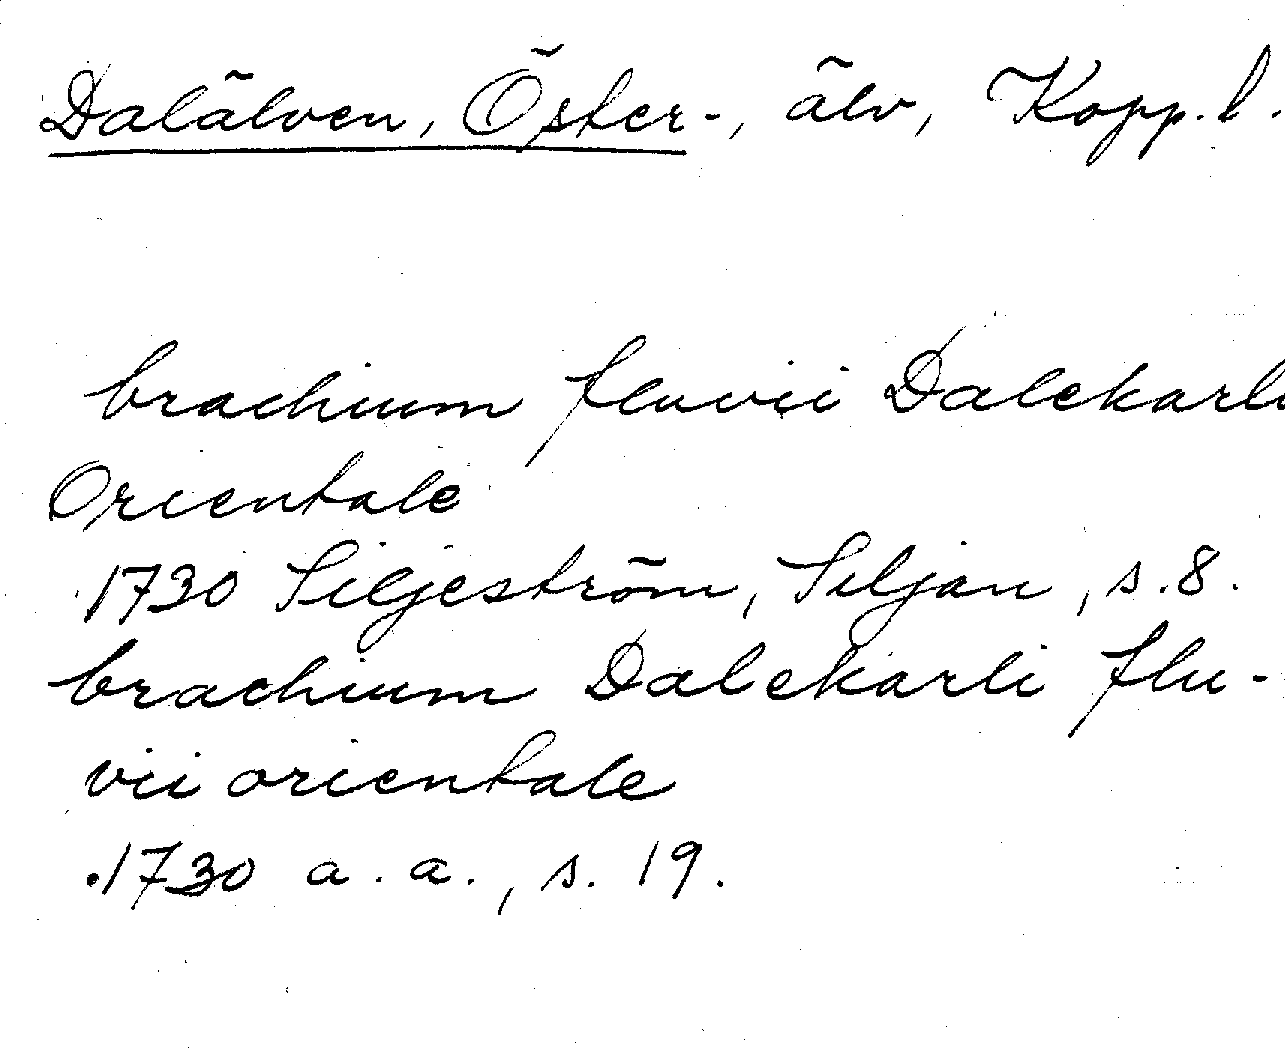 Dalälven, Öster-, älv, Kopp. l.
brachium fluvii Dalekarli
Orientale
1730 Siljeström, Siljan, s. 8.
brachium Dalekarli flu-
vii orientale
1730 a. a., s. 19.